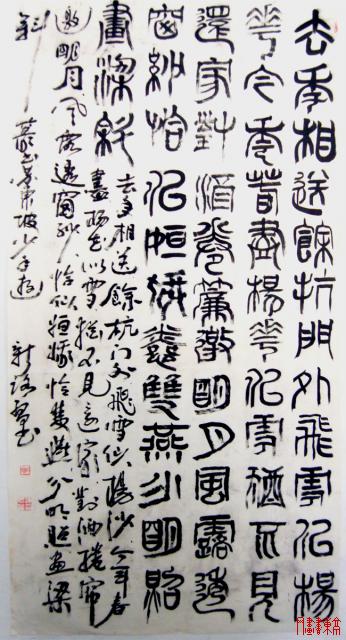 去年相送餘杭門外飛雪似楊
花今年春盡楊花似雪猶不見
還家對酒捲簾邀明月風露透
窗紗恰似姮娥憐雙燕分明照
畫梁斜
去年相送餘杭门外飛雪似楊花今年春
盡楊花似雪猶不見還家對酒捲帘
邀明月風露透窗紗恰似姮娥憐雙燕分明照畫梁
斜
東坡少年遊
書